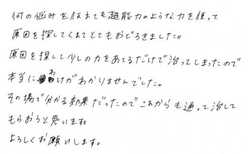 何の悩みを伝えても超能力のような力を使って
原因を探してくるてとてもおどろきました。
原因を探して少しの力をあてるだけで治ってしまったので
本当にわけがわかりませんでした。
その場で分かる効果だったのでこれからも通って治して
もらおうと思います
よろしくお願いします。